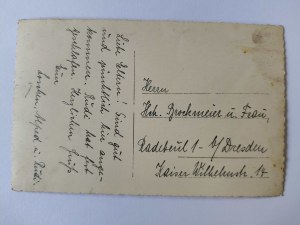 Liebe Eltern! Sind gut
und pünktlich hier ange-
kommen. Rudi hat gut
geschlafen. Herzlichen Gruß
Alfred u. Rudi.
Herrn
Hch. Brockmeier u. Frau,
Radebeul 1 - b/Dresden
Kaiser Wilhelmstr. 14